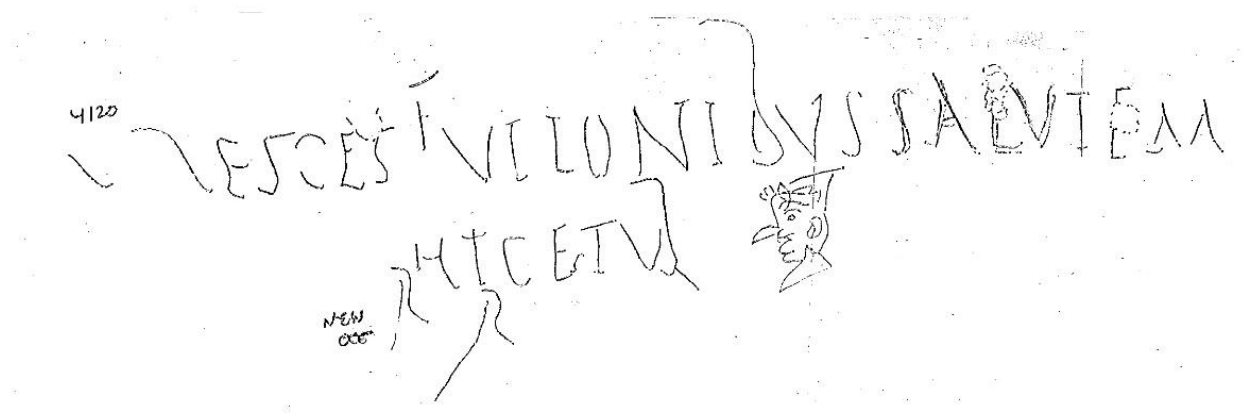 4120
CRESCES FVLLONIBVS SALVTEM
HIC ET V
NEW